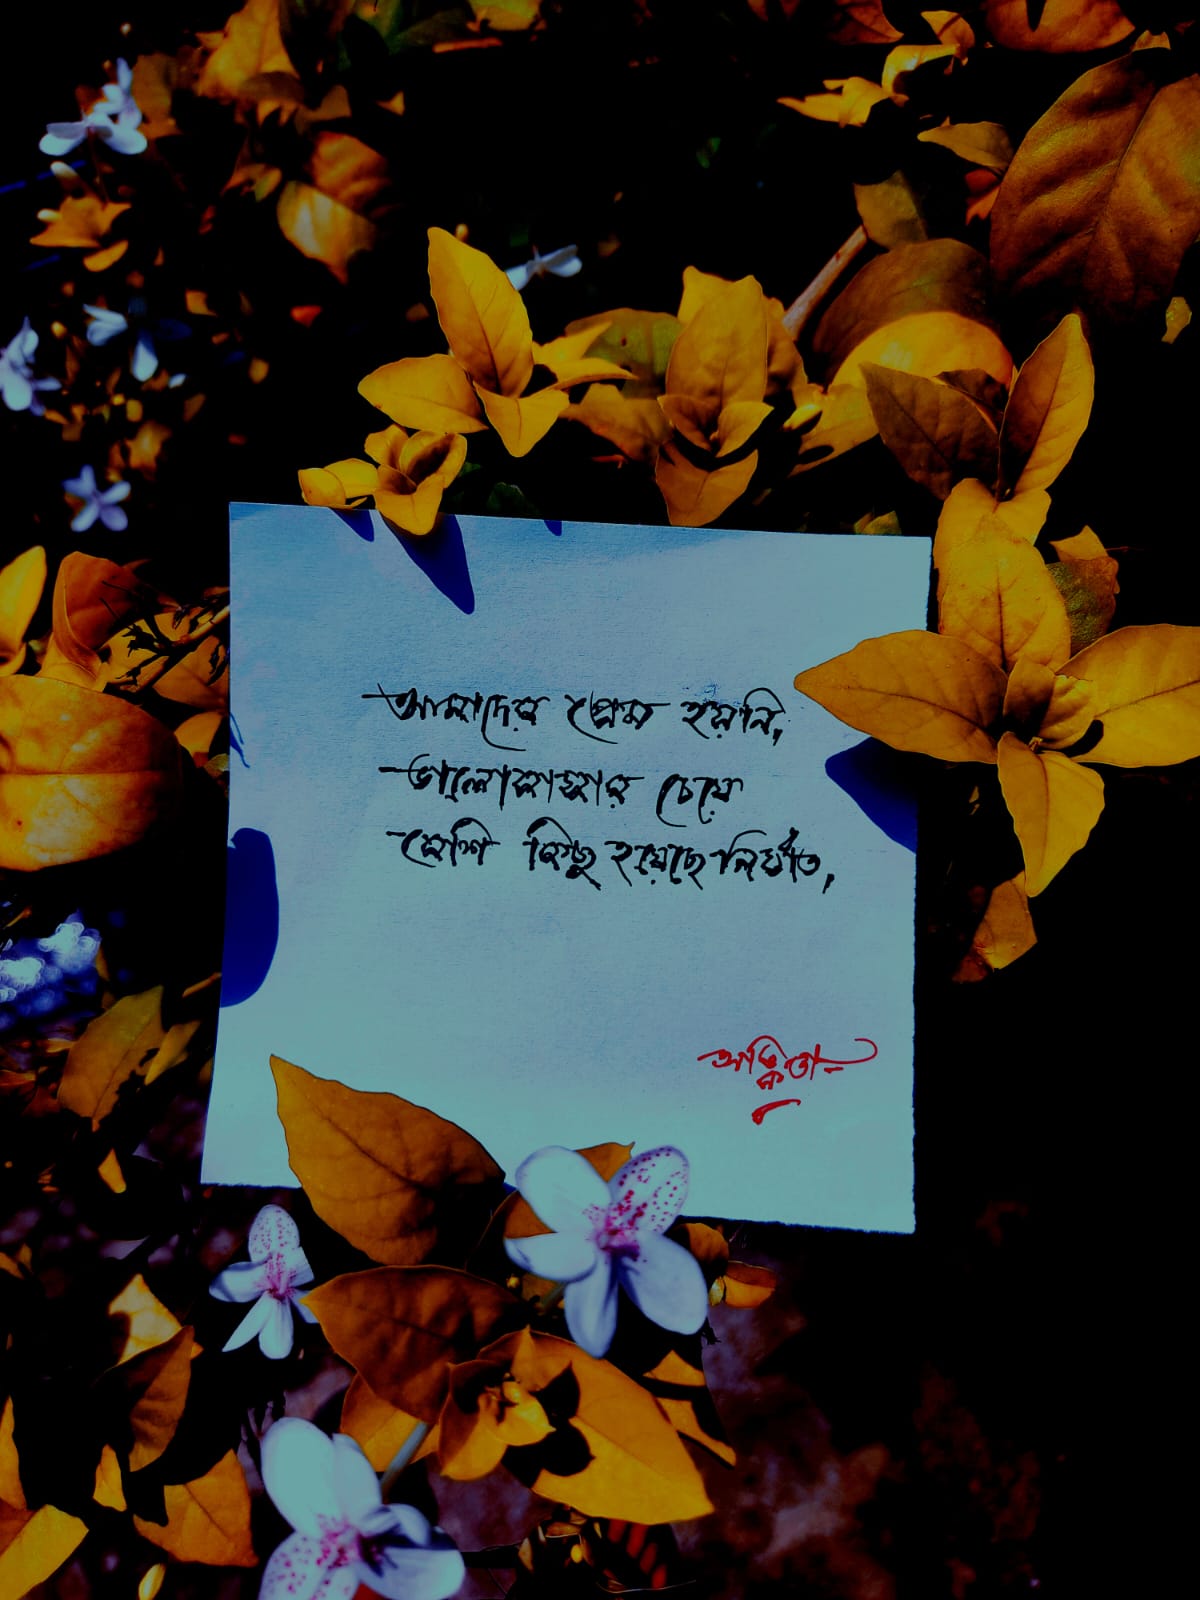 আমাদের প্রেম হয়নি,
ভালোবাসার চেয়ে
বেশি কিছু হয়েছে নির্ঘাত,
অঙ্কিতা